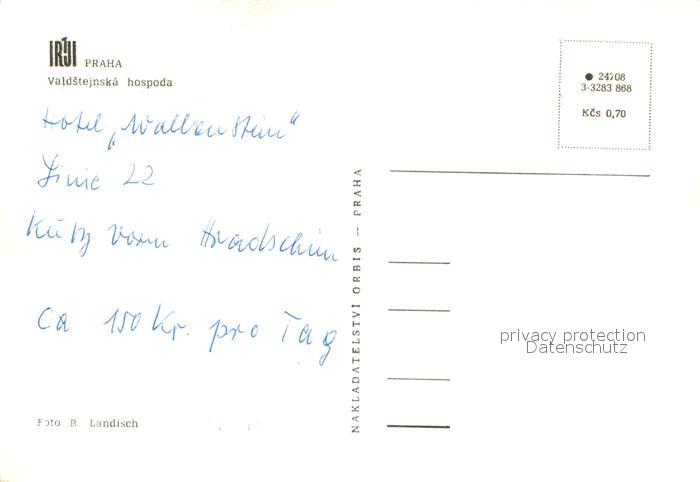 PRAHA
Valdštejnská hospoda
Hotel „Wallenstein“
Linie 22
Kurz vorm Hradschin
ca 150 Kr. pro Tag
Foto B. Landisch
NAKLADATELSTVÍ ORBIS — PRAHA
● 24708
3-3283 868
Kčs 0,70
privacy protection
Datenschutz